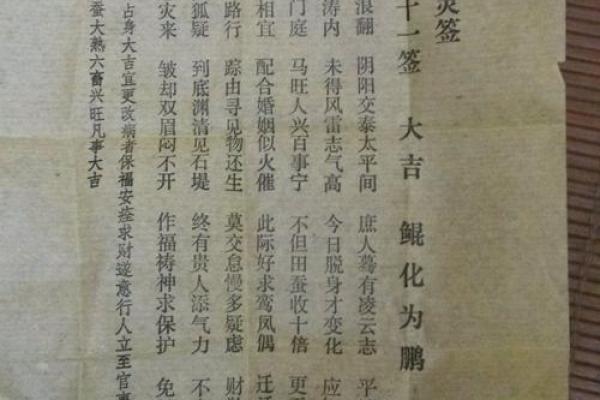 灵签
十一签 大吉 鲲化为鹏
浪翻 阴阳交泰太平间 庶人蓦有凌云志 平
涛内 未得风雷志气高 今日脱身才变化 应
门庭 马旺人兴百事宁 不但田蚕收十倍 更
相宜 配合婚姻似火催 此际好求鸾凤偶 迁
路行 踪由寻见物还生 莫交怠慢多疑虑 财
狐疑 到底渊清见石堤 终有贵人添气力 不
灾来 皱却双眉闷不开 作福祷神求保护 免
占身大吉宜更改病者保福安痊求财遂意行人立至官事
蚕大熟六畜兴旺凡事大吉